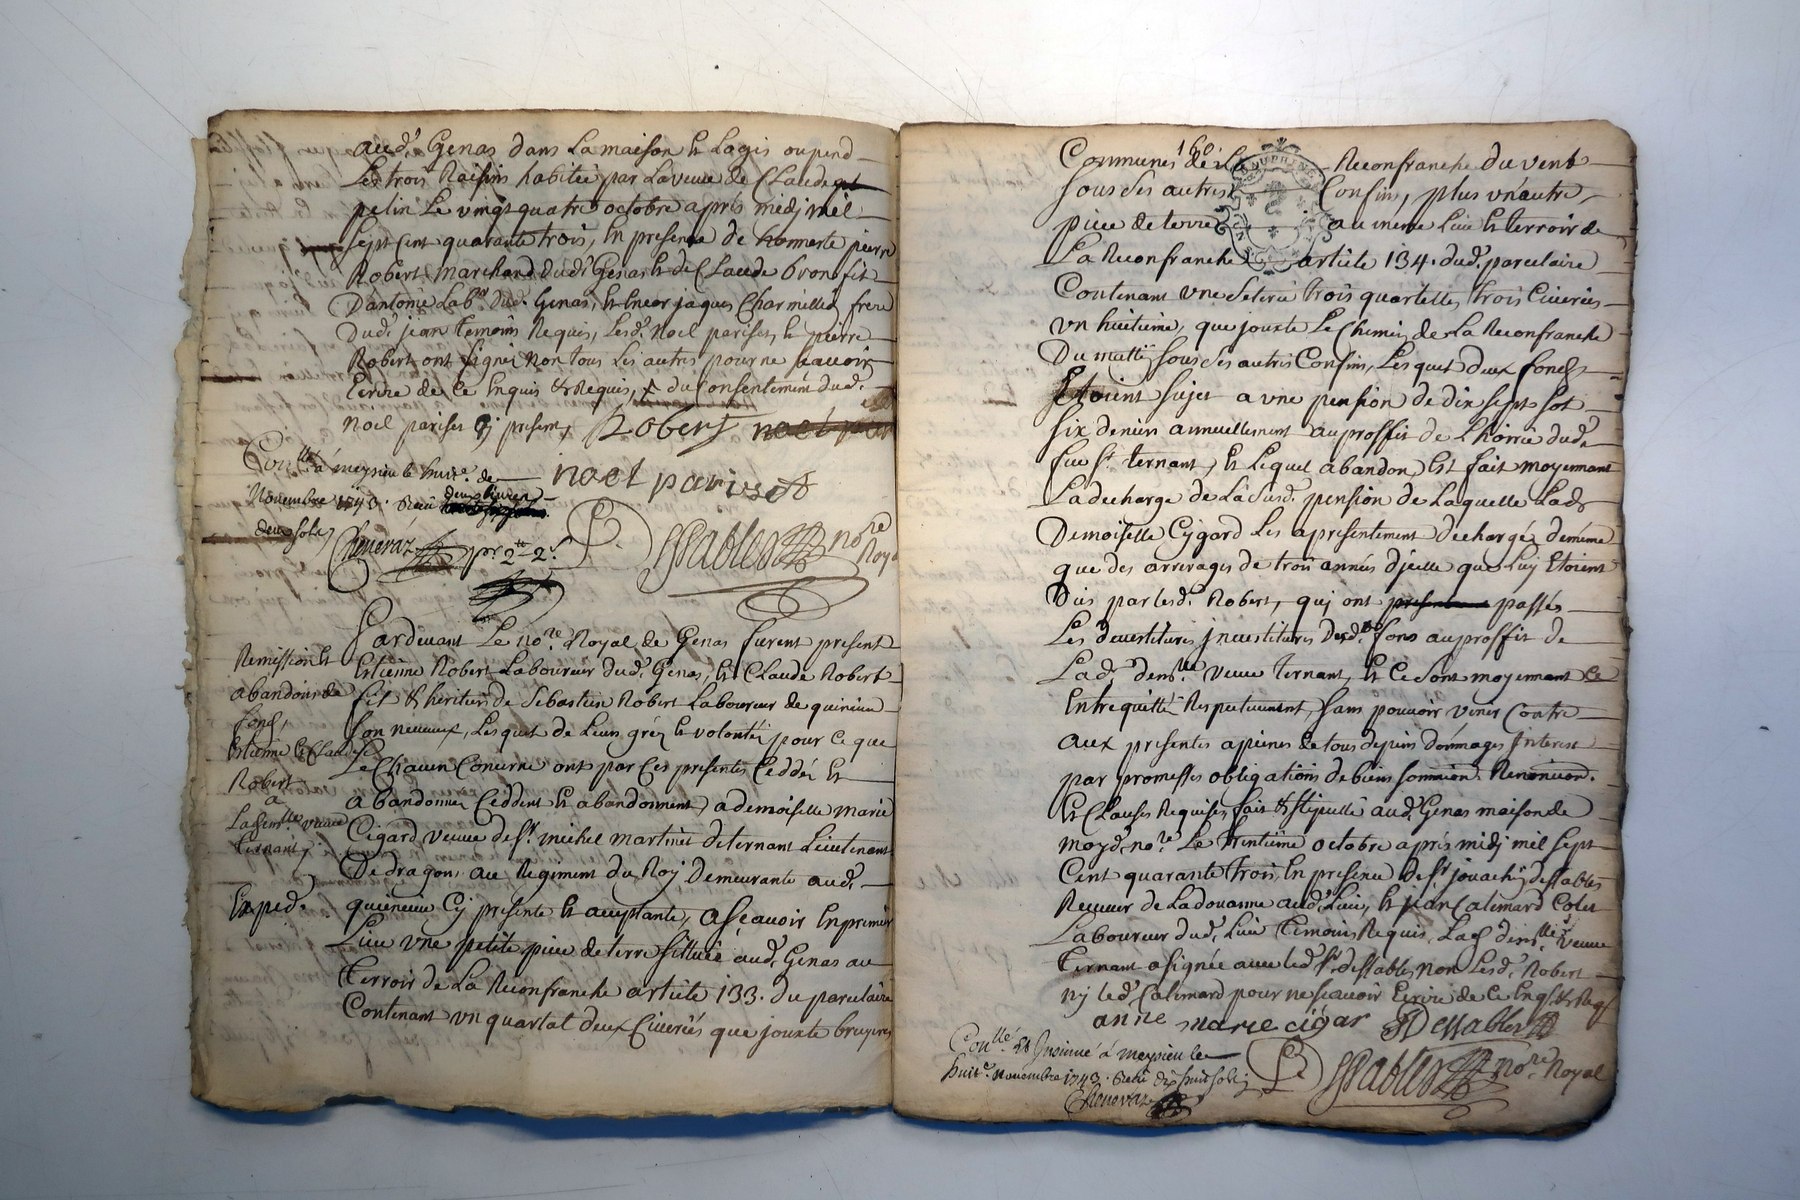 aud.t Genas dans La maison et Logis ou pend
Les trois Raisins habitée par La veuve de Claude
pelin Le vingt quatre octobre apres midj mil
sept cent quarante trois, En presence de pierre
Robert marchand dud.t Genas et de Claude bron fils
D'antoine Lab.r dud. Genas, et Encor jaques Charmille frere
dud.t jean temoins Requis, Lesd. Noel pariset, et pierre
Robert ont signés non tous Les autres pour ne scavoir
Ecrire de ce Enquis & Requis, du Consentement dud.
Noel pariset cy present, Robert
noel pariset
Con.llé a meysieu le huit.e de
Novembre 1743. Recu deux livres
deux sols,
Chenevaz pr 2.te 2.e
DEsSables no.re Royal
Pardevant Le no.re Royal de Genas furent present
Estienne Robert Laboureur dud. Genas, et Claude Robert
fils & heritier de Sebastien Robert Laboureur de quirieu
son neveux, Lesquels de Leurs gréz et volontés pour ce que
Le Chacun Concerne ont par ces presentes Ceddés et
abandonnés Ceddent et abandonnent, a demoiselle marie
Cigard veuve de S.r michel martinet de ternant Lieutenant
De dragons au Regiment du Roy Demeurante aud.
cy presente et acceptante, a sçavoir En premier
Lieu une petite piece de terre sittuée aud. Genas au
terroir de La Reconfranche article 133. du parcelaire
Contenant un quartal deux Civeriés que jouxte bruyeres
Remission et
abandon de
fond,
Estienne et Claude
Robert
a
La dem.lle veuve
ternant,
Exped.
160.
DAUPHINE
Communes de La Reconfranche du vent
sous ses autres Confins, plus un'autre
piece de terre au meme Lieu et terroir de
La Reconfranche article 134. dud. parcelaire
Contenant une seterée trois quartelles trois Civeriés
un huitieme, que jouxte Le Chemin de La Reconfranche
Du matin sous ses autres Confins, Lesquels deux fonds
Etoient sujet a une pension de dix sept sols
six deniers annuellement au proffit de L'hoirie dud.
feu S.r ternant, et Lequel abandon est fait moyennant
La decharge de La susd. pension de Laquelle Lad.
Demoiselle Cygard Les a presentement decharges de meme
que des arrerages de trois années d'jcelle que Luy Etoient
Dus par Lesd. Robert, quj ont passés
Les devestitures jnvestitures desd. fons au proffit de
Lad. dem.lle veuve ternant, et ce sont moyennant ce
Entrequittés Respectivement, sans pouvoir venir Contre
aux presentes a peines de tous depens dommages Interest
par promesses obligations de biens soummion. Renonciaon.
et Clauses Requises, fait & stipullé aud. Genas maison de
moyd. no.re Le trentieme octobre apres midj mil sept
Cent quarante trois, En presence de S.r jouachin desables
Receveur de La douanne aud. Lieu, et jean Calimard Colet
Laboureur dud. Lieu temoins Requis, Lad. dem.lle veuve
ternant a signée avec led. S.r desables, non Lesd. Robert
nj led. Calimard pour ne scavoir Ecrire de ce Enq.s & Req.s
anne marie cigar DEssables
Con.llé Et Insinué a meysieu le
huit.e Novembre 1743. Recu dix huit sols,
Chenevaz
DEsSables no.re Royal